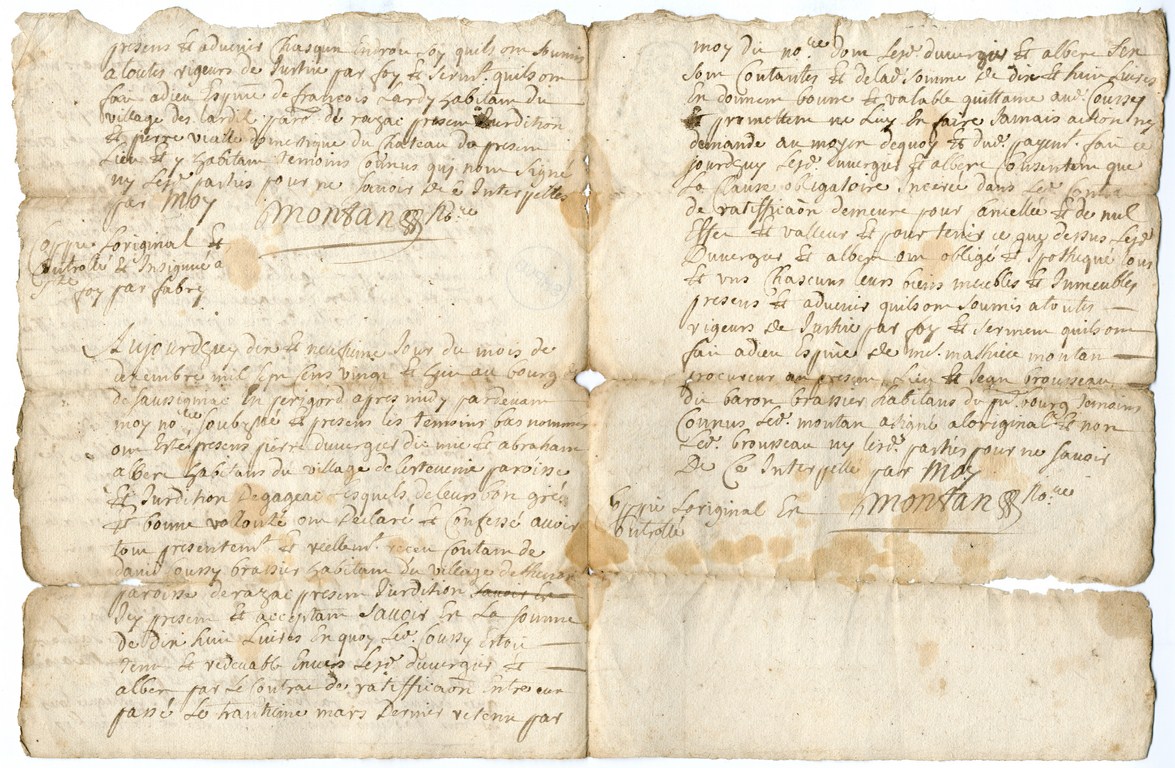 presens et advenir Chasqun Endroi soy quils ont soumis
a toutes rigeurs de Justice par foy et serm.t quils ont
fait a dieu Es pnce de francois Lardy habitant du
village des lardit paro.e de razac presente Jurdition
et pierre viaite domestique du Chateau du present
Lieu et y habitant temoins Connus qui nont signé
ny Lesd. parties pour ne savoir de ce Interpelles
par Moy
Montan No.re
Coppie Loriginal Et
Controllé et Insignué a
foy par fabry
Aujourdhuy dix et neufieme Jour du mois de
dexembre mil sept Cens vingt et huit au bourg
de saussignac En perigord apres midy pardevant
moy no.re soubsigné et presens les temoins bas nommes
ont Esté presens pierre duvergier dit mice et abraham
albert habitans du village de lestevenie paroisse
et Jurdition de gageac Lesquels de leurs bon gré
et bonne volonté ont declaré et Confessé avoir
tout presentem.t et réellem.t receu Contant de
daniel Coussy brassier habitant du village de
paroisse de razac presente Jurdition
Icy present et acceptant savoir En La somme
de dix huit Livres En quoy led. Coussy Estoit
tenu et redevable Envers Lesd. duvergier et
albert par Le Contrat de ratiffication Entre eux
passé Le trantieme mars dernier retenu par
moy dit no.re dont lesd. duvergier et albert sen
sont Contantes et de lad. somme de dix et huit livres
En donnent bonne et valable quittance aud. Coussy
et promettent ne Luy En faire Jamais action ny
demande au moyen de quoy et dud. payem.t fait ce
jourdhuy Lesd. duvergier et albert Consentent que
La Clause obligatoire Inceree dans Led. Contrat
de ratiffication demeure pour Cancellée et de nul
Effet et valleur et pour tenir ce que dessus Lesd.
duvergier et albert ont obligé et Ipotheque tous
et uns Chascuns leurs biens meubles et Immeubles
presens et advenir quils ont soumis a toutes
rigeurs de Justice par foy et serment quils ont
fait a dieu Es pnce de m.e mathieu montan
procureur au present Lieu et Jean brousseau
dit baron brassier habitans du pnt. bourg temoins
Connus Led. montan a signé a loriginal et non
Led. brousseau ny lesd. parties pour ne savoir
De Ce Interpellé par Moy
Montan No.re
Coppie Loriginal En
Controllé